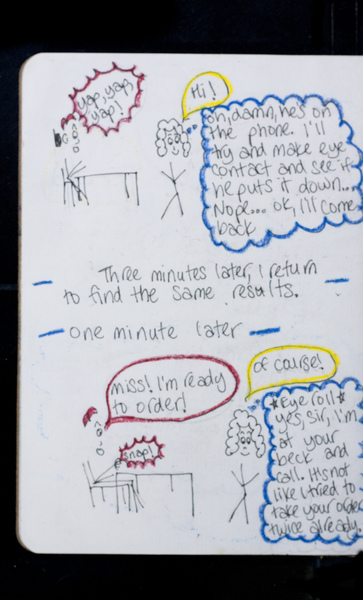 yap, yap,
yap!
Hi!
oh, damn, he's on
the phone. I'll
try and make eye
contact and see if
he puts it down...
Nope... ok, I'll come
back
Three minutes later, I return
to find the same results.
one minute later
miss! I'm ready
to order!
snap!
of course!
*Eye roll*
yes, sir, I'm
at your
beck and
call. It's not
like I tried to
take your order
twice already.